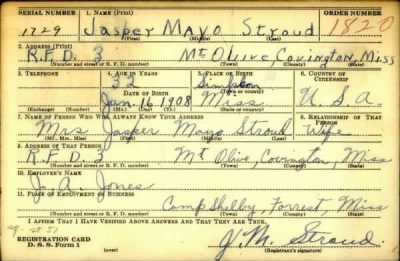 SERIAL NUMBER 1. NAME (Print) ORDER NUMBER
1729 Jasper Mayo Stroud 1820
(First) (Middle) (Last)
2. ADDRESS (Print)
R.F.D. 3 Mt Olive, Covington, Miss
(Number and street or R. F. D. number) (Town) (County) (State)
3. TELEPHONE 4. AGE IN YEARS 5. PLACE OF BIRTH 6. COUNTRY OF CITIZENSHIP
32 Simpson
DATE OF BIRTH (Town or county)
Jan. 16 1908 Miss U.S.A.
(Exchange) (Number) (Mo.) (Day) (Yr.) (State or country)
7. NAME OF PERSON WHO WILL ALWAYS KNOW YOUR ADDRESS 8. RELATIONSHIP OF THAT PERSON
Mrs Jasper Mayo Stroud Wife
(Mr., Mrs., Miss) (First) (Middle) (Last)
9. ADDRESS OF THAT PERSON
R.F.D. 3 Mt Olive, Covington, Miss
(Number and street or R. F. D. number) (Town) (County) (State)
10. EMPLOYER'S NAME
J. A. Jones
11. PLACE OF EMPLOYMENT OR BUSINESS
Camp Shelby, Forrest, Miss
(Number and street or R. F. D. number) (Town) (County) (State)
I AFFIRM THAT I HAVE VERIFIED ABOVE ANSWERS AND THAT THEY ARE TRUE.
REGISTRATION CARD
D. S. S. Form 1 J. M. Stroud
(Registrant's signature)